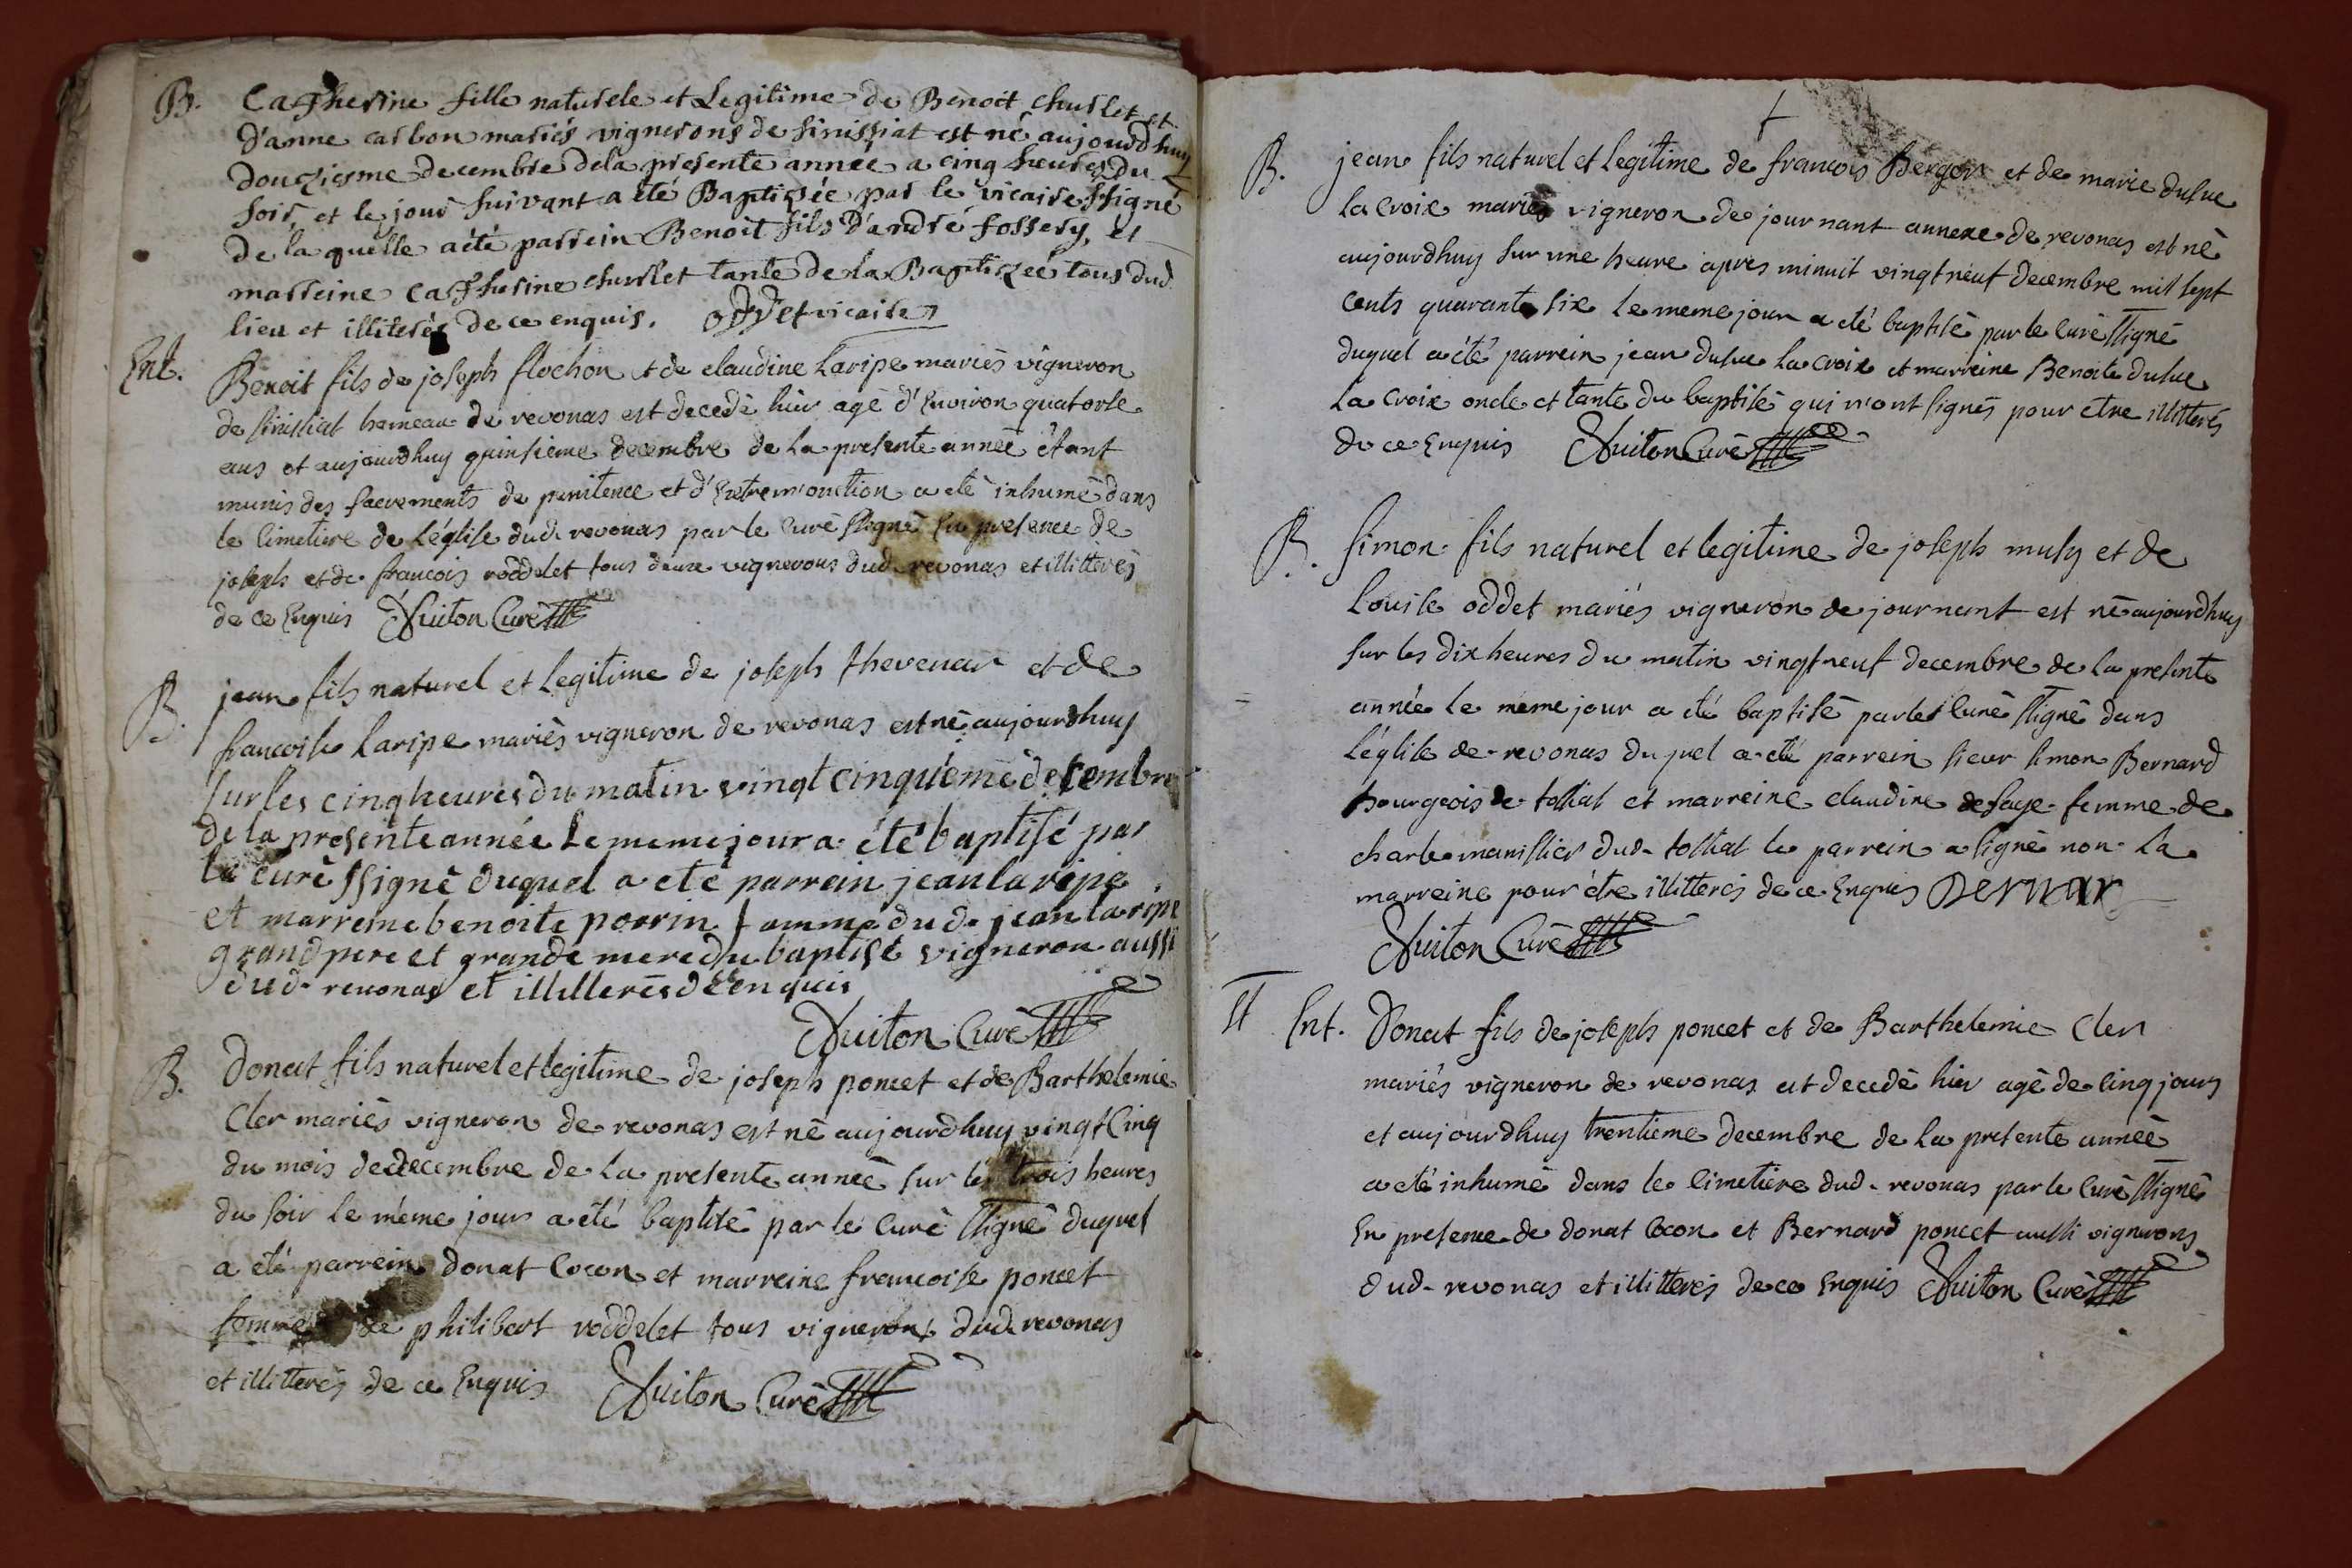 B. Catherine fille naturele et Legitime de Benoit churlet et
d'anne carbon mariés vignerons de sinissiat est né aujourdhuy
douziesme decembre dela presente année a cinq heures du
soir, et le jour suivant a été Baptizée par le vicaire ssigné
de la quelle a été parrein Benoit fils d'andré fossery, et
marreine Catherine churlet tante de la Baptizée tous dud
lieu et illiterés de ce enquis. oddet vicaire
Ent. Benoit fils de joseph flochon et de claudine Laripe mariés vigneron
de sinissiat hameau de revonas est decedé hier agé d'Environ quatorse
ans et aujourdhuy quinsieme decembre de la presente année étant
munis des sacrements de penitence et d'Extremonction a eté inhumé dans
le Cimetiere de L'église dud. revonas par le Curé ssigné En presence de
joseph et de francois roddelet tous deux vignerons dud. revonas et illitterés
de ce Enquis Guiton Curé
B. jean fils naturel et Legitime de joseph thevenar et de
francoise Laripe mariés vigneron de revonas est né aujourdhuy
sur les cinq heures du matin vingt cinquéme decembre
de la presente année Le meme jour a été baptisé par
le curé ssigné duquel a eté parrein jean laripe
et marreine benoite perrin famme dud. jean laripe
grand pere et grande mere du baptisé vigneron aussi
dud. revonas et illitterés de ce enquis
Guiton Curé
B. Donat fils naturel et legitime de joseph poncet et de Barthelemie
Cler mariés vigneron de revonas est né aujourdhuy vingt Cinq
du mois de decembre de la presente année sur les trois heures
du soir le méme jour a été baptisé par le Curé ssigné duquel
a été parrein donat Cocon et marreine francoise poncet
femme de philibert roddelet tous vignerons dud. revonas
et illitterés de ce Enquis Guiton Curé
B. jean fils naturel et legitime de francois Berger et de marie dusuc
La croix mariés vigneron de journant annexe de revonas est né
aujourdhuy sur une heure apres minuit vingt neuf decembre mil sept
cents quarante six Le meme jour a eté baptisé par le Curé ssigné
duquel a été parrein jean dusuc La croix et marreine Benoite dusuc
La croix oncle et tante du baptisé qui n'ont signés pour etre illitterés
de ce Enquis Guiton Curé
B. simon fils naturel et legitime de joseph musy et de
Louise oddet mariés vigneron de journant est né aujourdhuy
sur les dix heures du matin vingt neuf decembre de la presente
année le méme jour a été baptisé par le Curé ssigné dans
L'église de revonas du quel a eté parrein sieur simon Bernard
bourgeois de tossiat et marreine claudine defaye femme de
charle manissier dud. tossiat le parrein a signé non la
marreine pour étre illitterés de ce Enquis Bernar
Guiton Curé
Ent. Donat fils de joseph poncet et de Barthelemie Cler
mariés vigneron de revonas est decedé hier agé de Cinq jours
et aujourdhuy trentieme decembre de la presente année
a eté inhumé dans le Cimetiere dud. revonas par le Curé ssigné
En presence de donat Cocon et Bernard poncet aussi vignerons
dud. revonas et illitterés de ce Enquis Guiton Curé